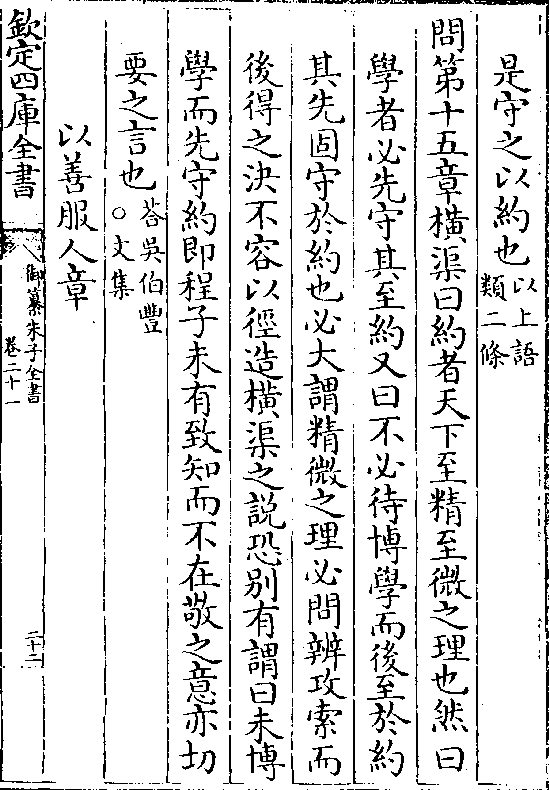 是守之以約也以上語類二條
問第十五章橫渠曰約者天下至精至微之理也然曰
學者必先守其至約又曰不必待博學而後至於約
其先固守於約也必大謂精微之理必問辨攻索而
後得之決不容以徑造橫渠之説恐别有謂曰未博
學而先守約即程子未有致知而不在敬之意亦切
要之言也荅吳伯豐○文集
以善服人章
欽定四庫全書
御纂朱子全書
卷二十一
二十二